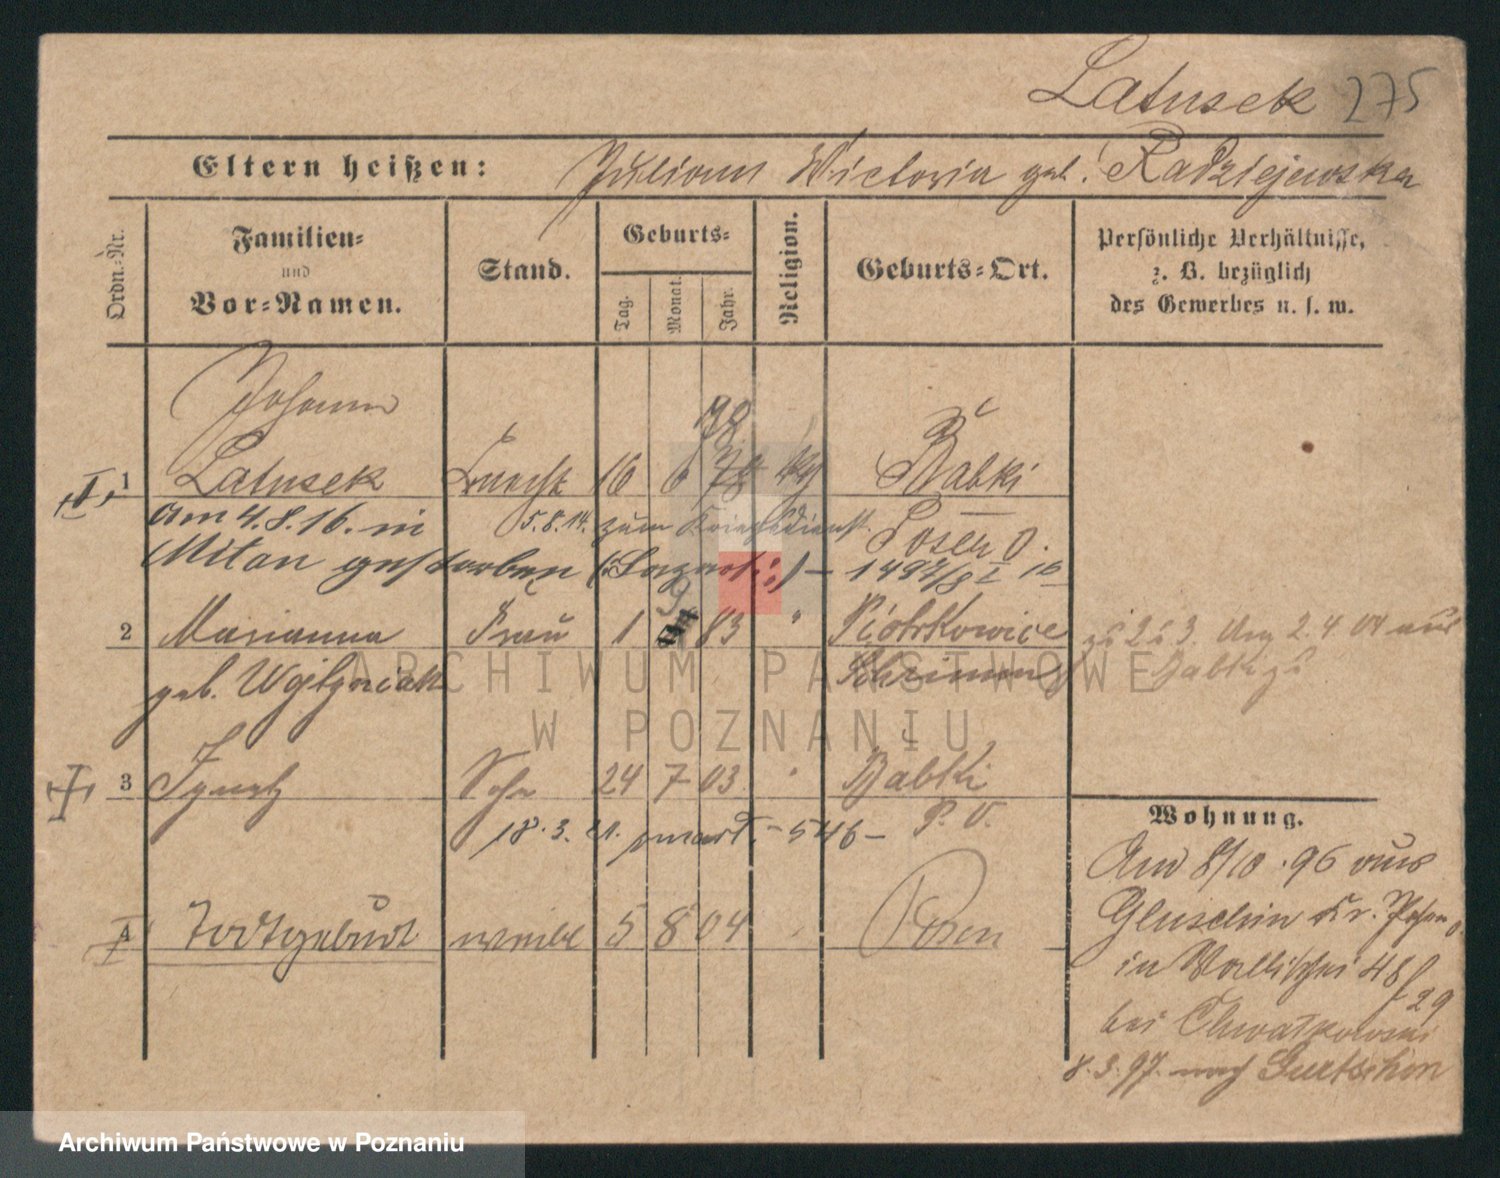 Latusek 275
Eltern heißen: Julian Wictoria geb. Radziejewska
Ordn.-Nr.
Familien-
und
Vor-Namen.
Stand.
Geburts-
Tag.
Monat.
Jahr.
Religion.
Geburts-Ort.
Persönliche Verhältnisse,
z. B. bezüglich
des Gewerbes u. s. w.
Johann
78
1 Latusek Knecht 16 6 78 kg Babki
am 4.8.16. in 5.8.14. zum Kriegsdienst. Posen O.
Mitau gestorben (Lazarett)
9
2 Marianna Frau 1 83 " Piotrkowice zu 2 u 3. Anz 2.4 04 aus
geb. Schrimm Babki zu
3 Ignatz Sohn 24 7 03 " Babki
18.3.21. - 546 - P. O.
4 Todtgeburt weibl 5 8 04 Posen
Wohnung.
Am 8/10.96 aus
Gluschin Kr. Posen O
in Wallischei 48/29
bei Chwatkowski
8.3.97. nach Gurtschin
ARCHIWUM PAŃSTWOWE
W POZNANIU
Archiwum Państwowe w Poznaniu